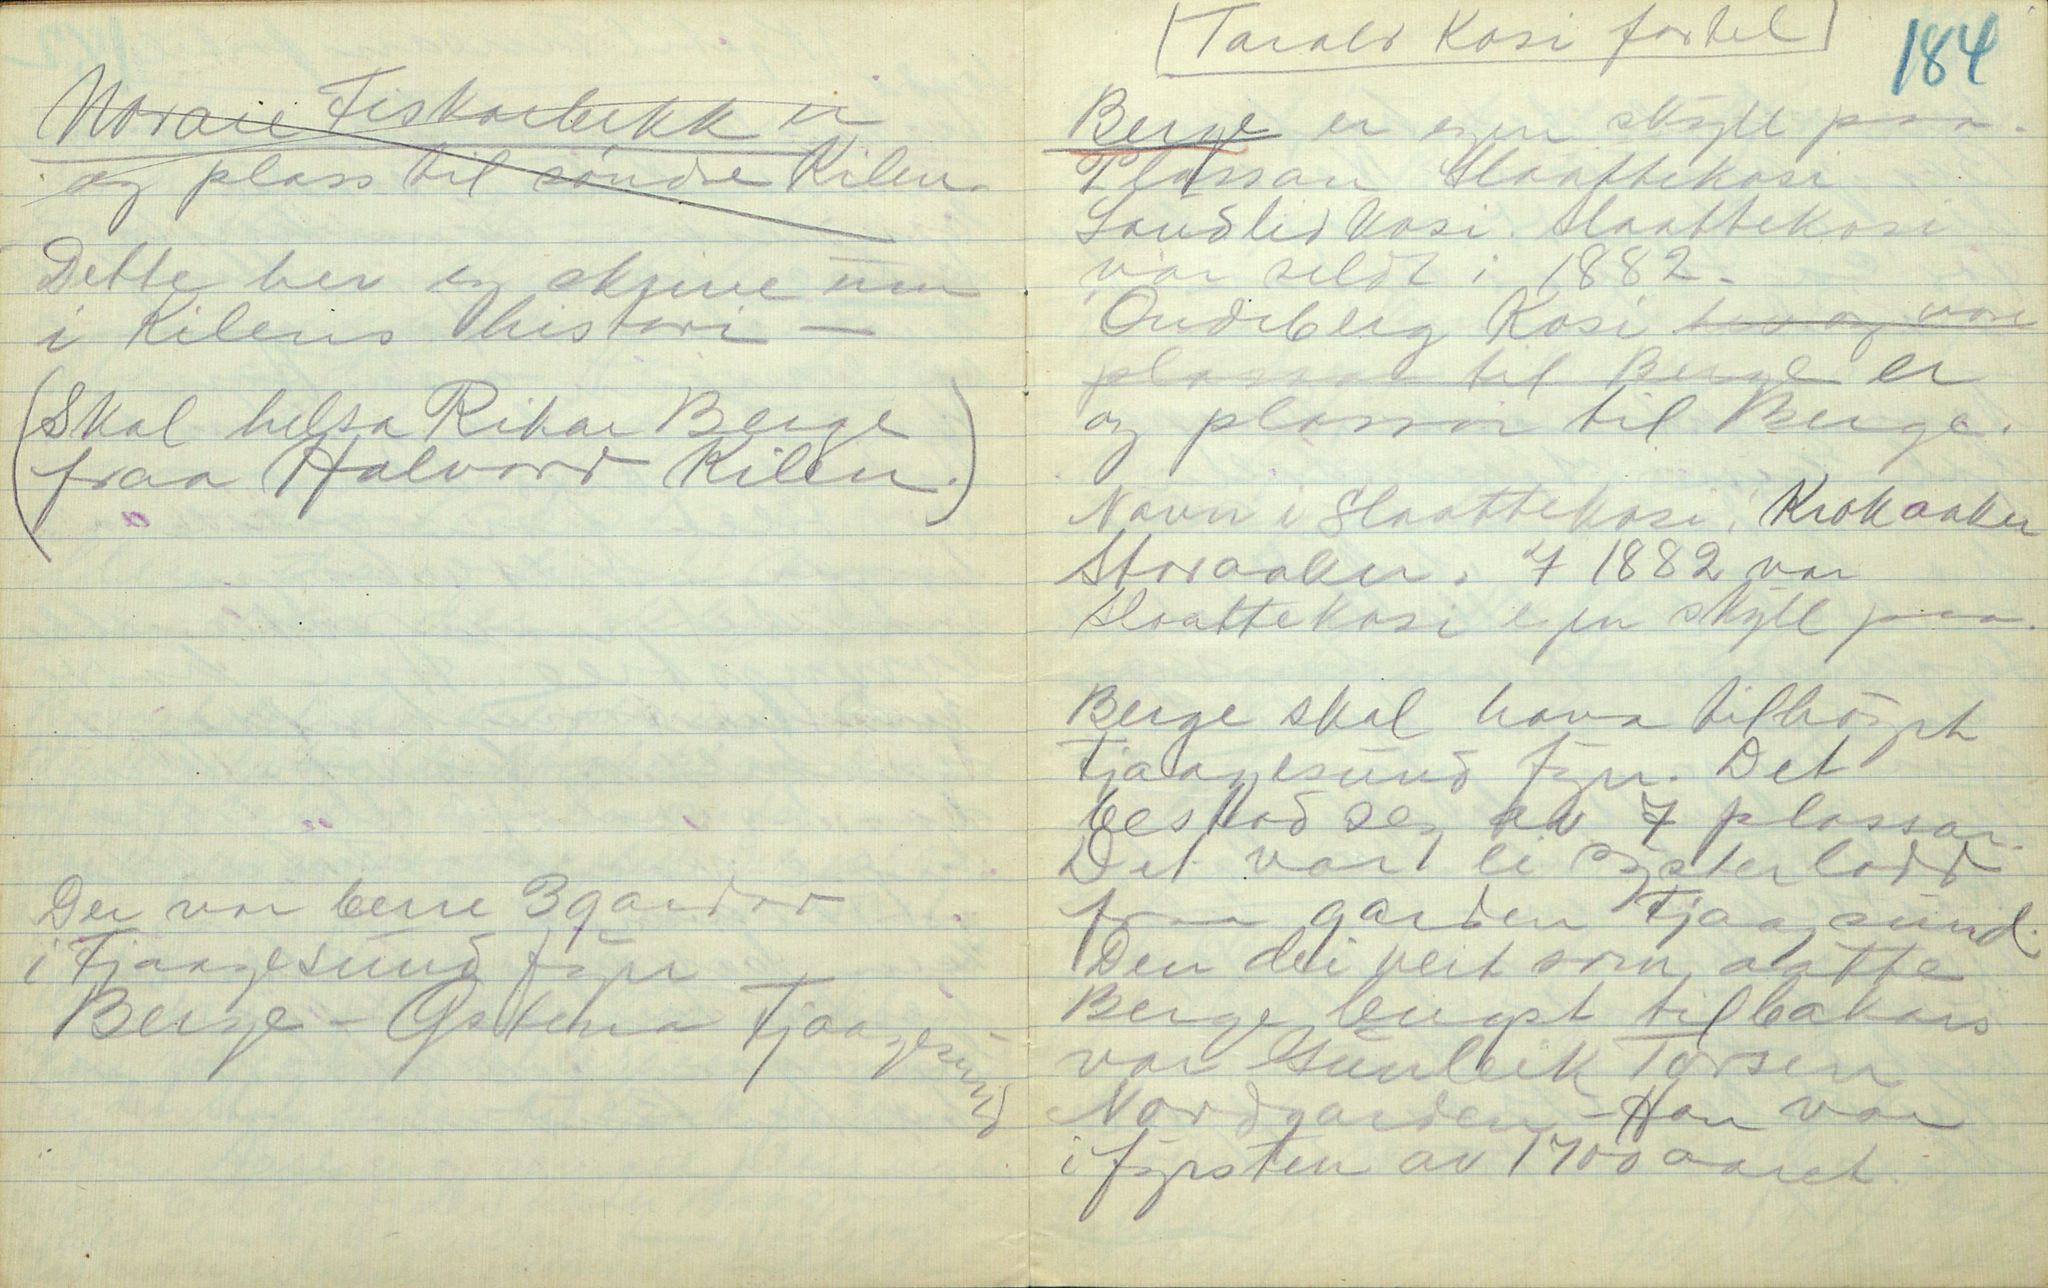 Norare Fiskarbekk er
og plass til søndre Kilen.
Dette her eg skrive um
i Kilens histori —
(Skal helsa Rikar Berge
fraa Halvord Kilen.)
Der var berre 3 gardar
i Tjaagesund fyrr
Berge – Østera Tjaagesund
(Tarald Kosi fortel)
184
Berge er egen skyll paa.
Plassan Slaattekosi
Sandlid Kosi. Slaattekosi
var seldt i 1882.
Kosi hev og vore
plassar til Berge er
og plassar til Berge.
Navn i Slaattekosi, Krokaaker
Storaaker. I 1882 var
Slaattekosi egen skyll paa.
Berge skal hava tilhøyrt
Tjaagesund fyrr. Det
bestod seg av 7 plassar.
Det var ei systerlodd
fraa garden Tjaagesund.
Den dei veit som aatte
Berge lengst tilbakars
var Gunleik Torsen
Nordgarden – Han var
i fyrsten av 1700 aaret.